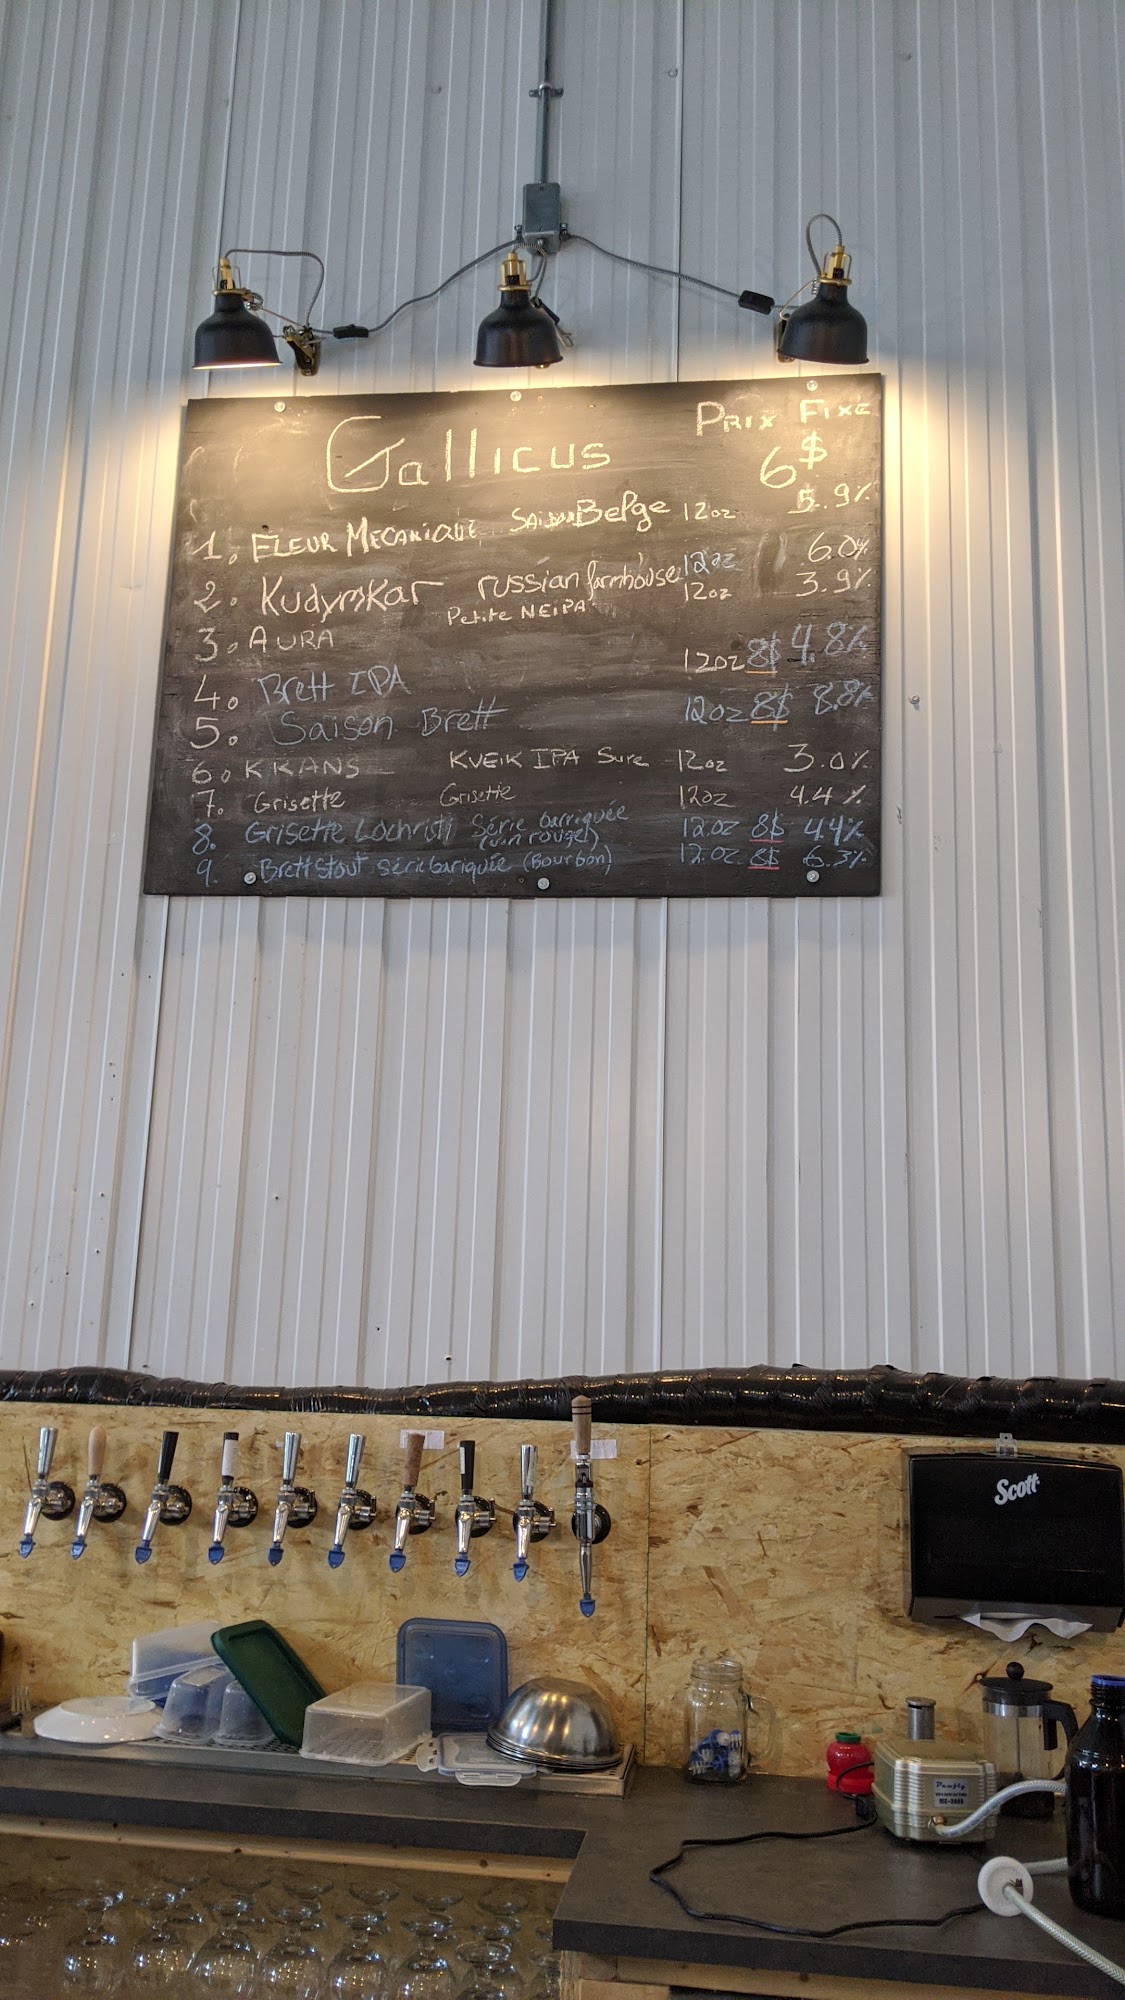 Gallicus
PRIX FIXE
6$
1. FLEUR MECANIQUE SAISON Belge 12oz 5.9%
2. KudymKar russian farmhouse 12oz 6.0%
3. AURA Petite NEIPA 12oz 3.9%
4. Brett IPA 12oz 8$ 4.8%
5. Saison Brett 12oz 8$ 8.8%
6. KRANS KVEIK IPA Sure 12oz 3.0%
7. Grisette Grisette 12oz 4.4%
8. Grisette Lochristi Série barriquée 12.oz 8$ 4.4%
(vin rouge)
9. Brett Stout série bariquée (Bourbon) 12.oz 8$ 6.3%
Scott
Pawfly